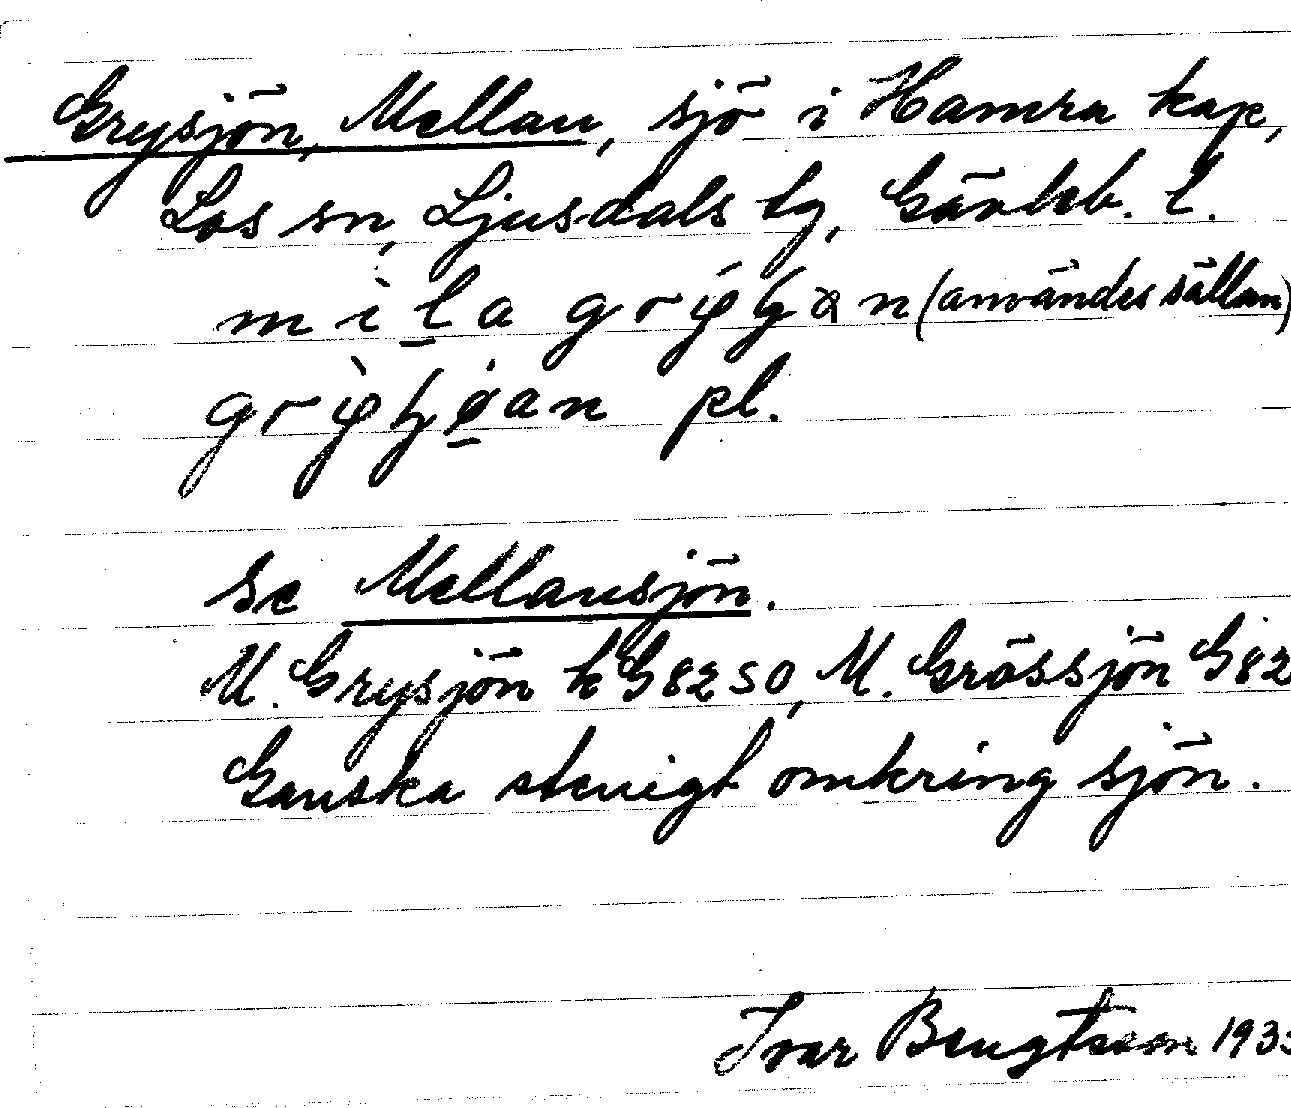 Grysjön, Mellan, sjö i Hamra kap,
Los sn, Ljusdals tg, Gävleb. l.
(användes sällan)
pl.
se Mellansjön.
M. Grysjön k G82 SO, M. Grössjön G82
Ganska stenigt omkring sjön.
Ivar Bengtsson 193